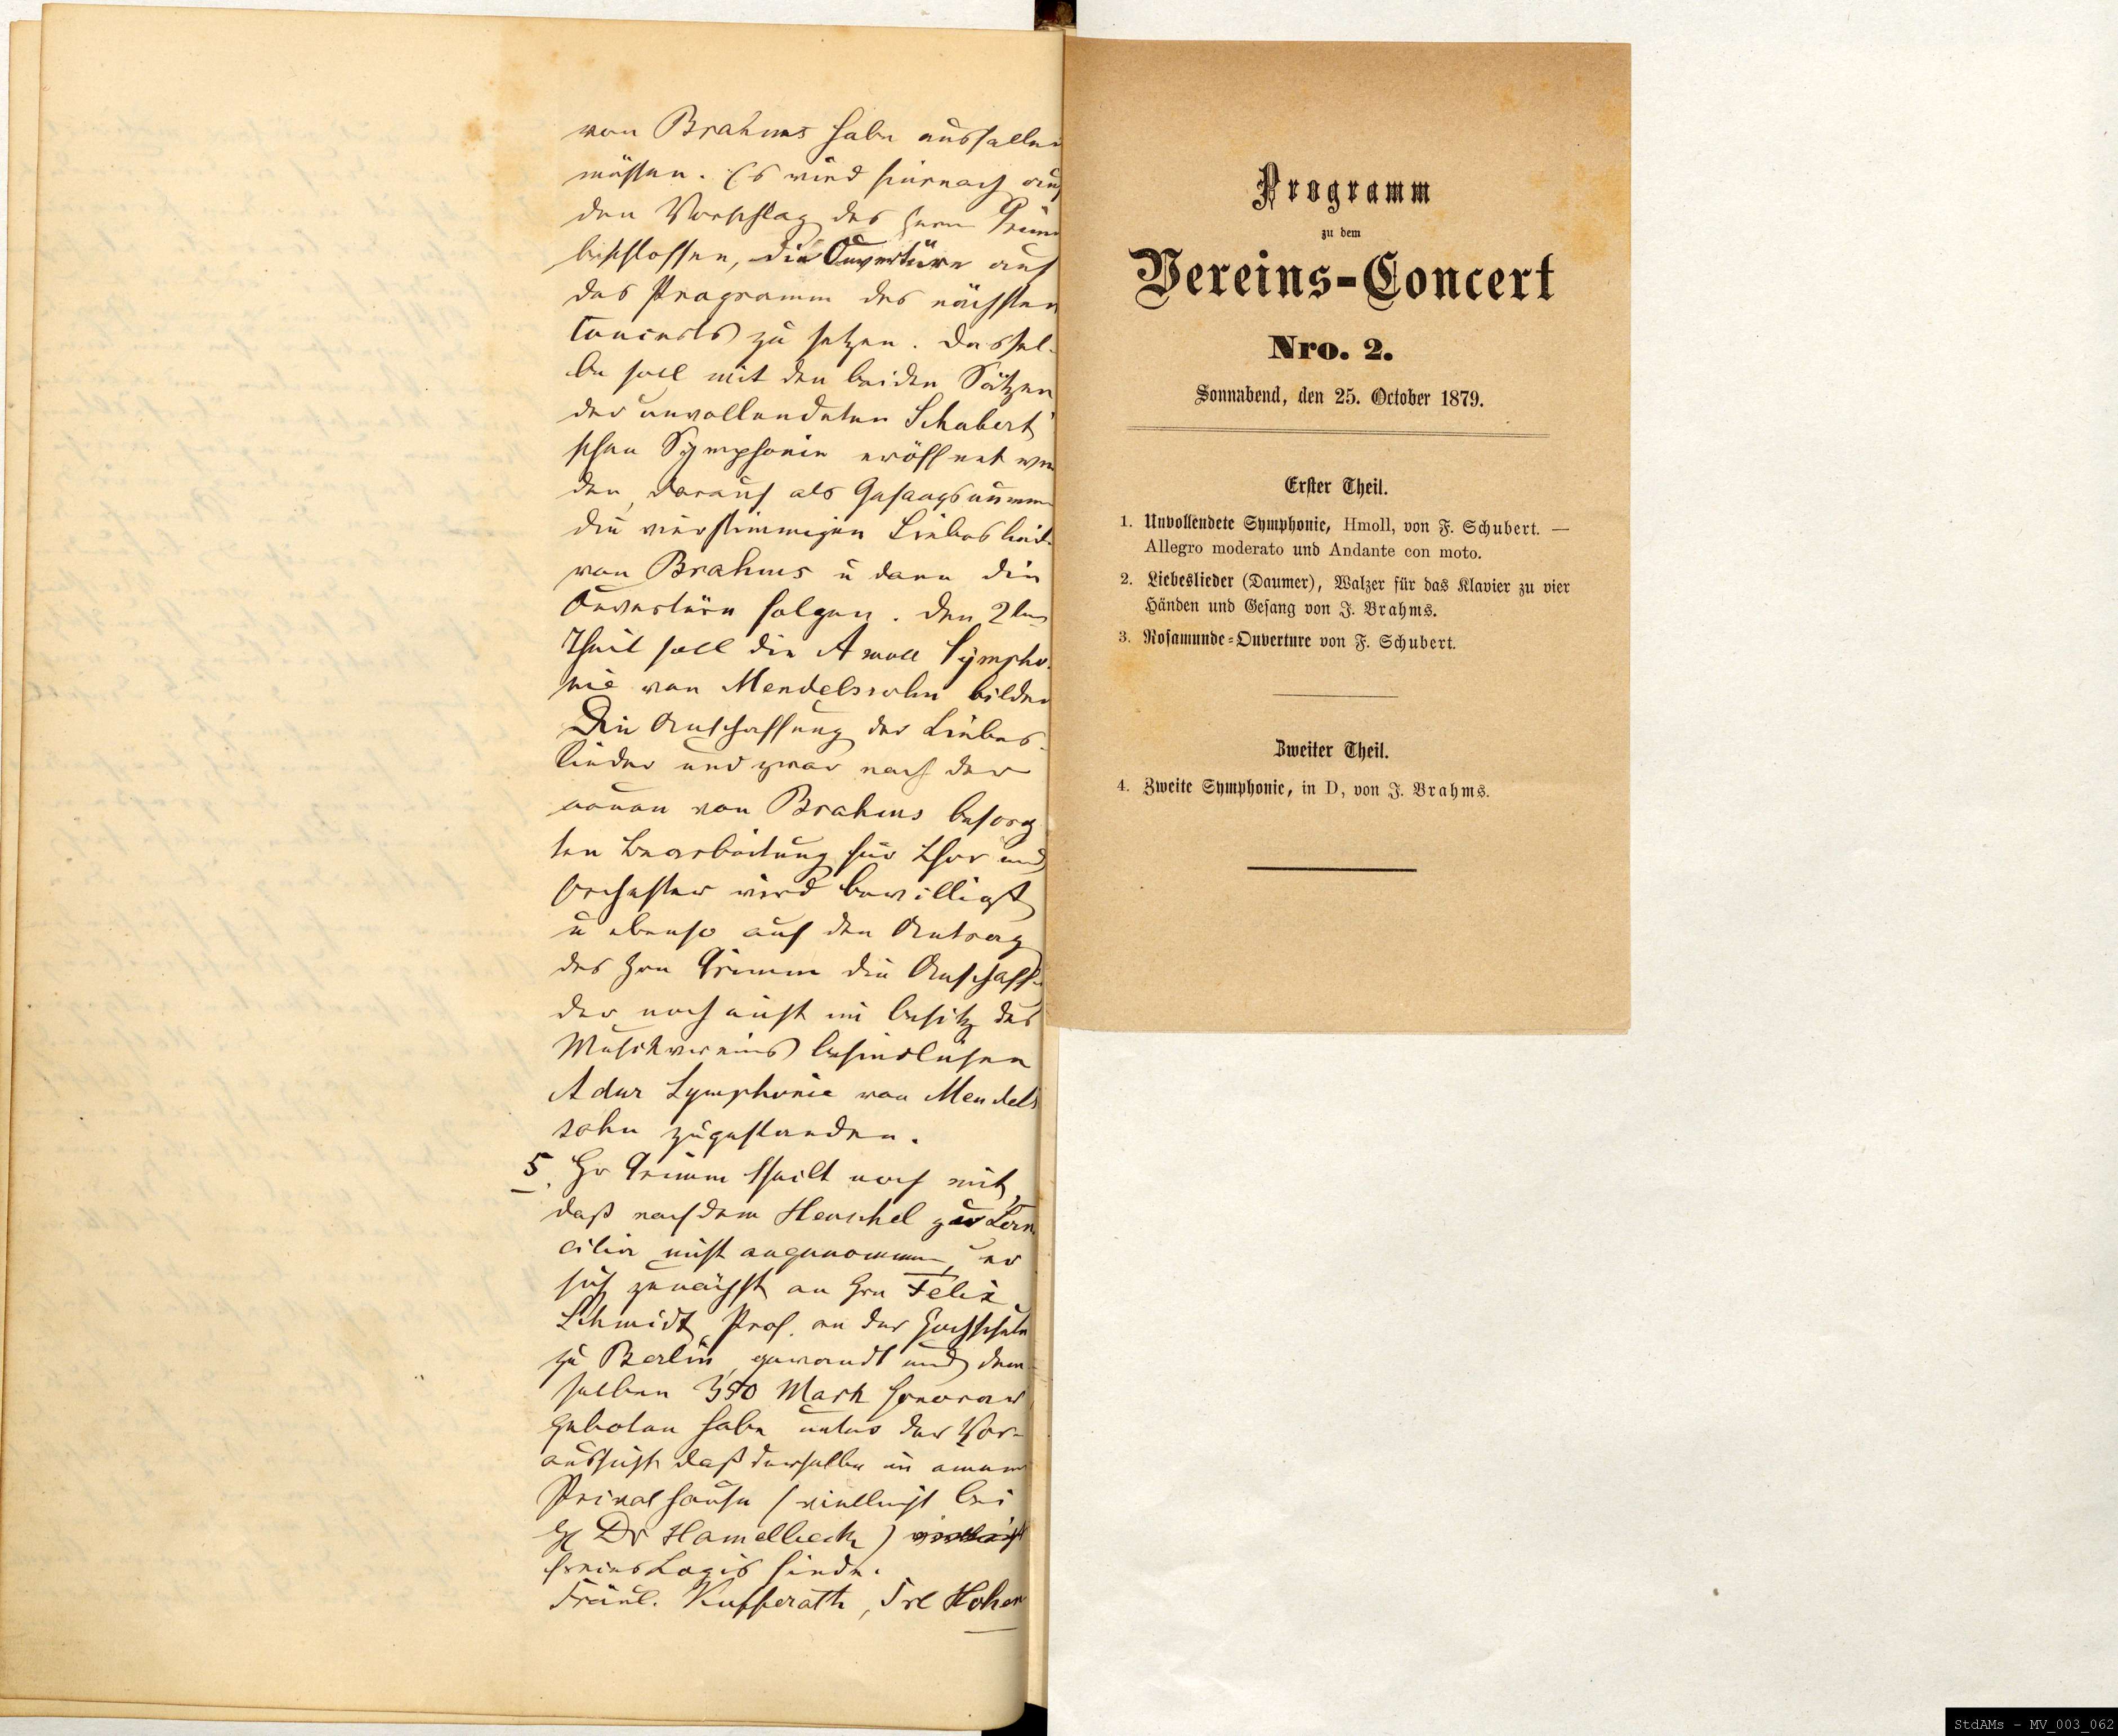 von Brahms habe ausfallen
müssen. Es wird hiernach auf
den Vorschlag des Herrn Grimm
beschlossen, die Ouvertüre auf
das Programm des nächsten
Concerts zu setzen. Dassel-
be soll mit den beiden Sätzen
der unvollendeten Schubert'
schen Symphonie eröffnet wer
den, darauf als Gesangsnummer
die vierstimmigen Liebeslied.
von Brahms u dann die
Ouvertüre folgen. Den 2ten
Theil soll die A moll Sympho-
nie von Mendelssohn bilden
Die Anschaffung der Liebes-
lieder und zwar nach der
neuen von Brahms besorg
ten Bearbeitung für Chor und
Orchester wird bewilligt
u ebenso auf den Antrag
des Hrn Grimm die Anschaff.
der noch nicht im Besitz des
Musikvereins befindlichen
A dur Symphonie von Mendels
sohn zugestanden.
5. Hr Grimm theilt noch mit,
daß nachdem Henschel zur
nicht angenommen, er
sich zunächst an Hrn Felix
Schmidt, Prof. an der Hochschule
zu Berlin, gewandt und dem-
selben 350 Mark Honorar
geboten habe unter der Vor-
aussicht daß derselbe in einem
Privathause (vielleicht bei
H Dr Hamelbeck) vielleicht
freies Logis finde.
Fräul. Kufferath, Frl Hohen
Programm
zu dem
Vereins-Concert
Nro. 2.
Sonnabend, den 25. October 1879.
Erster Theil.
1. Unvollendete Symphonie, Hmoll, von F. Schubert. —
Allegro moderato und Andante con moto.
2. Liebeslieder (Daumer), Walzer für das Klavier zu vier
Händen und Gesang von J. Brahms.
3. Rosamunde-Ouverture von F. Schubert.
Zweiter Theil.
4. Zweite Symphonie, in D, von J. Brahms.
StdAMs - MV_003_062